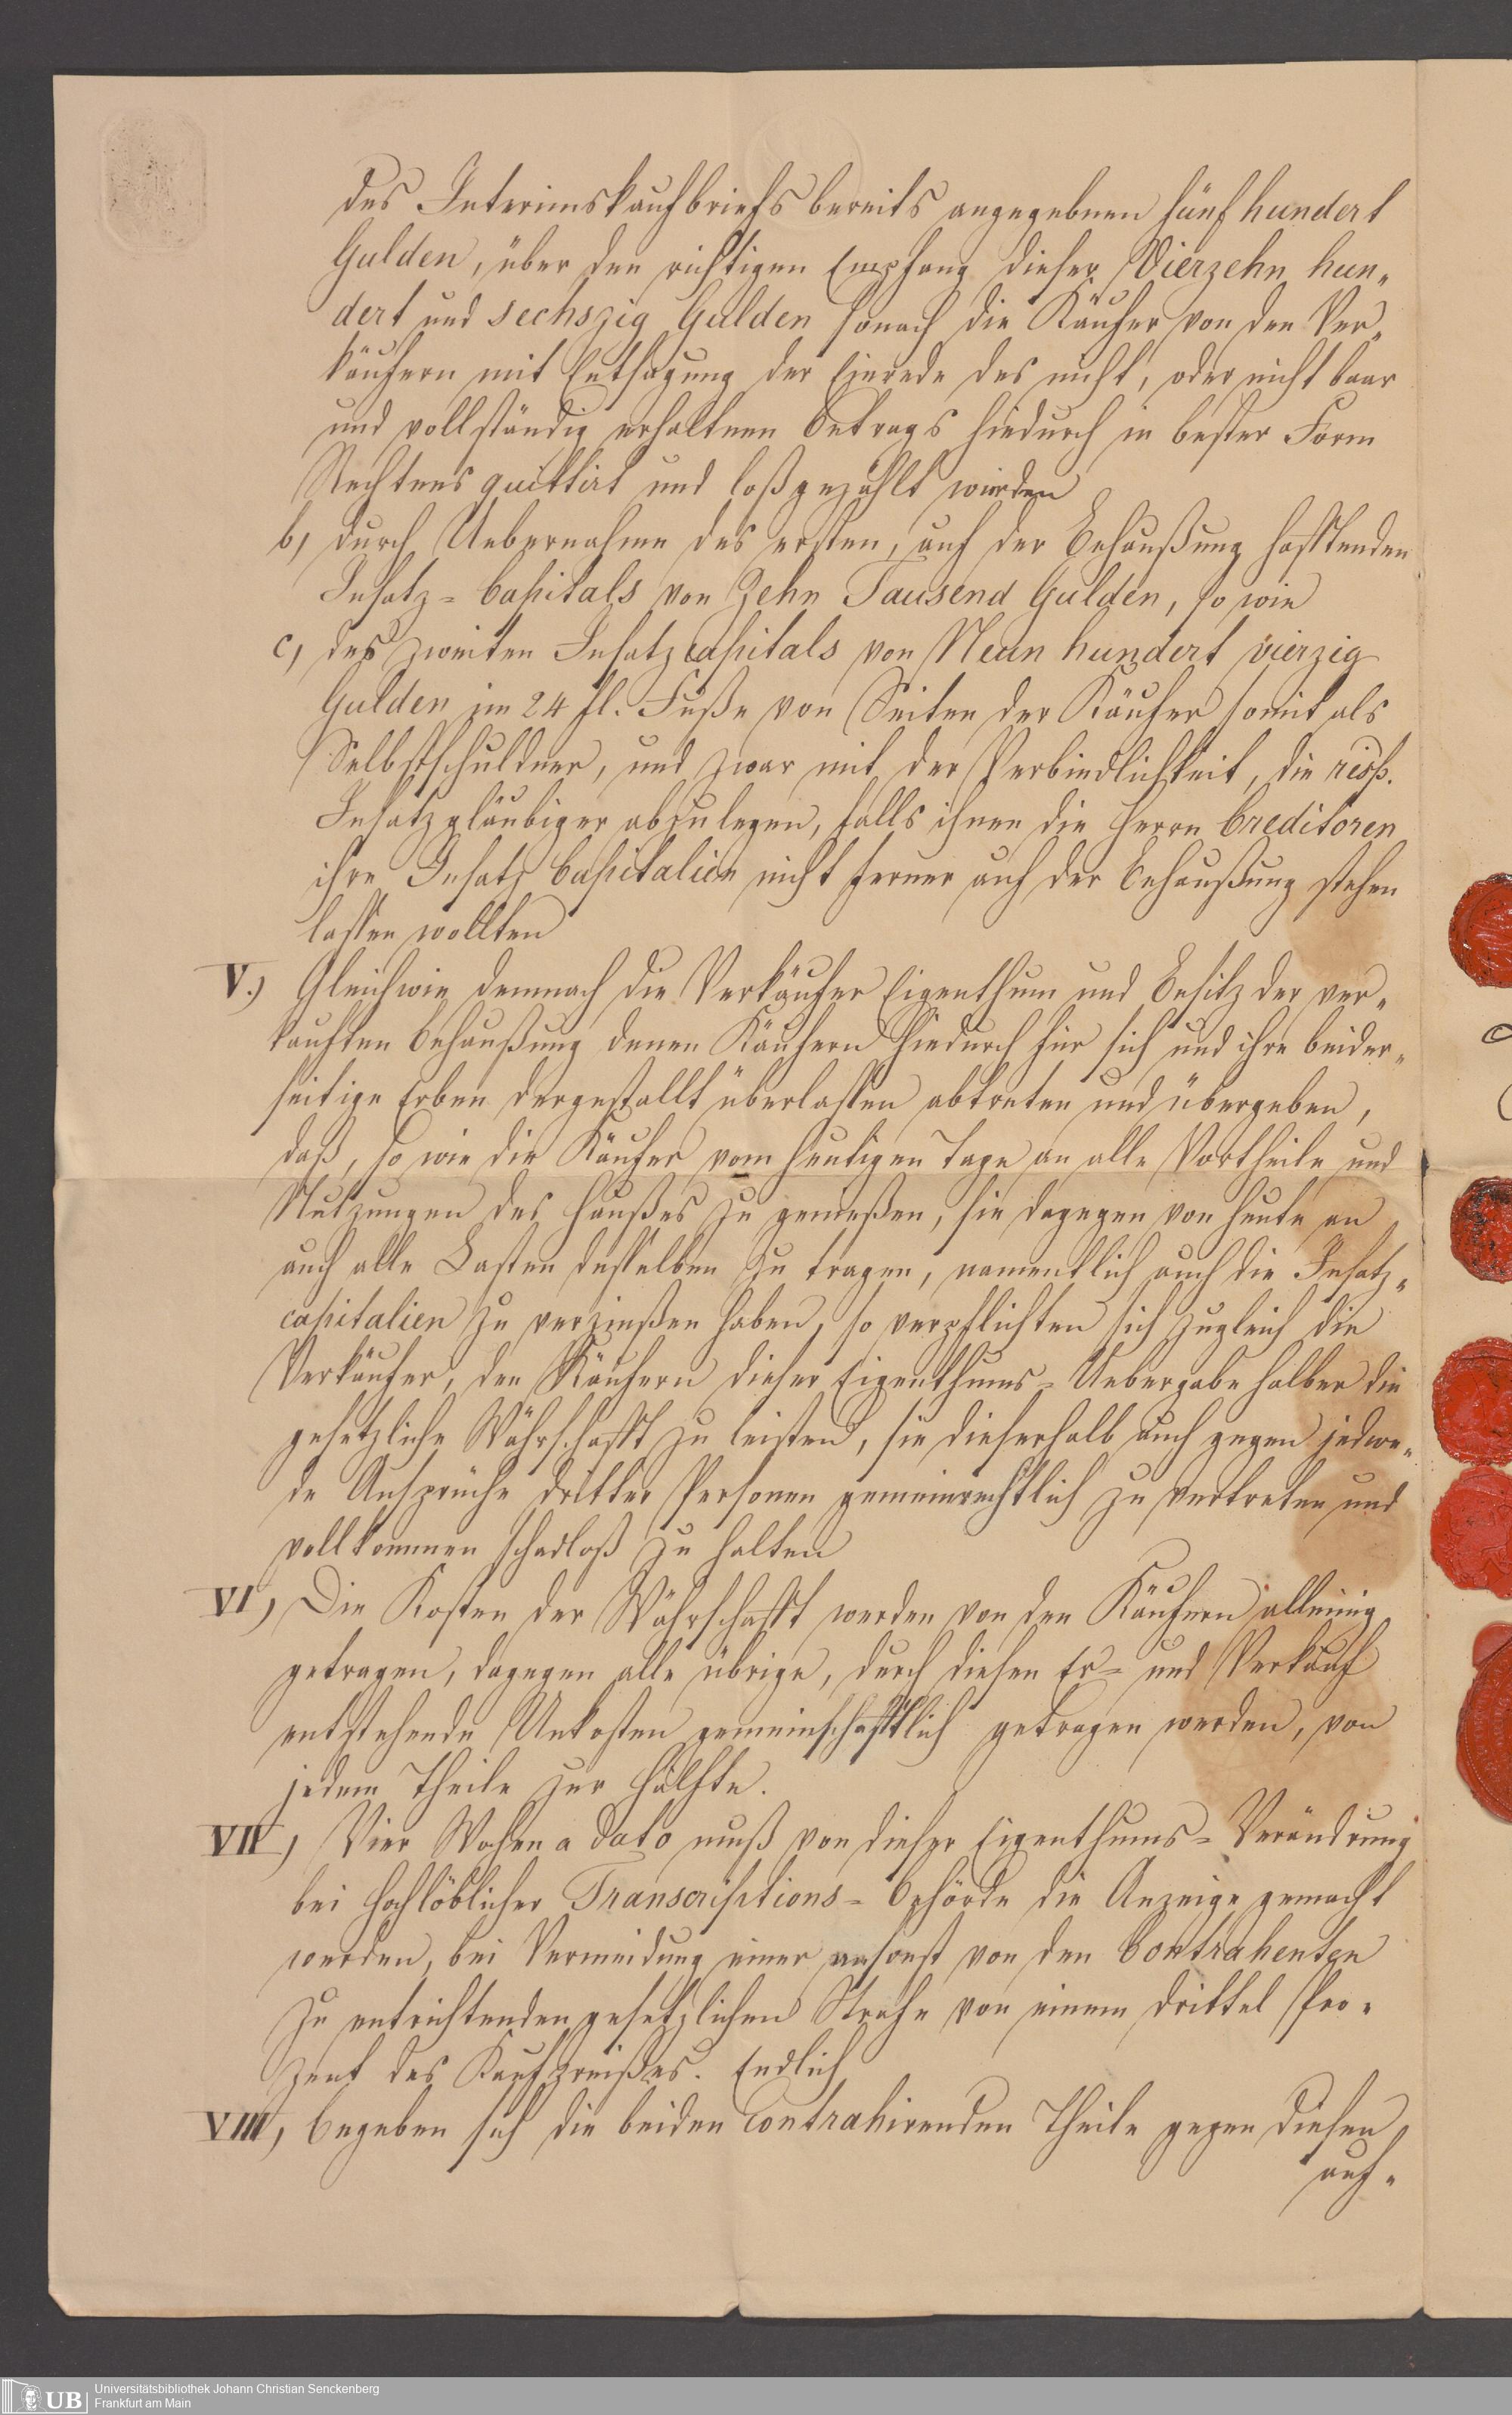 des Interimskaufbriefs bereits angegebnen fünf hundert
Gulden, über den richtigen Empfang dieser Vierzehn hun„
dert und sechszig Gulden sonach die Käufer von den Ver„
käufern mit Entsagung der Einrede des nicht, oder nicht baar
und vollständig erhaltnen Betrags hiedurch in bester Form
Rechtens quittirt und loßgezählt werden
b, durch Uebernahme des ersten, auf der Behaußung hafftenden
Insatz-Capitals von Zehn Tausend Gulden, so wie
c, des zweiten Insatzcapitals von Neun hundert vierzig
Gulden im 24 fl. Fuße von Seiten der Käufer somit als
Selbstschuldner, und zwar mit der Verbindlichkeit, die resp.
Insatzgläubiger abzulegen, falls ihnen die Herrn Creditoren
ihre Insatz Capitalien nicht ferner auf der Behaußung stehen
lassen wollten
V.) Gleichwie demnach die Verkäufer Eigenthum und Besitz der ver„
kauften Behaußung denen Käufern hiedurch für sich und ihre beider„
seitige Erben dergestallt überlassen abtreten und übergeben,
daß, so wie die Käufer vom heutigen Tage an alle Vortheile und
Nutzungen des Haußes zu genießen, sie dagegen von heute an
auch alle Lasten desselben zu tragen, namentlich auch die Insatz„
capitalien zu verzinßen haben, so verpflichten sich zugleich die
Verkäufer, den Käufern dieser Eigenthums-Uebergabe halber die
gesetzliche Währschafft zu leisten, sie dieserhalb auch gegen jedwe„
de Ansprüche dritter Personen gemeinrechtlich zu vertreten und
vollkommen schadloß zu halten
VI, Die Kosten der Währschafft werden von den Käufern alleinig
getragen, dagegen alle übrige, durch diesen Er- und Verkauf
entstehende Unkosten gemeinschafftlich getragen werden, von
jedem Theile zur Hälfte.
VII, Vier Wochen a dato muß von dieser Eigenthums-Verändrung
bei hochlöblicher Transcriptions-Behörde die Anzeige gemacht
werden, bei Vermeidung einer ansonst von den Contrahenten
zu entrichtenden gesetzlichen Strafe von einem drittel Pro„
zent des Kaufpreißes. Endlich
VIII, begeben sich die beiden contrahirenden Theile gegen diesen
auf„
UB
Universitätsbibliothek Johann Christian Senckenberg
Frankfurt am Main